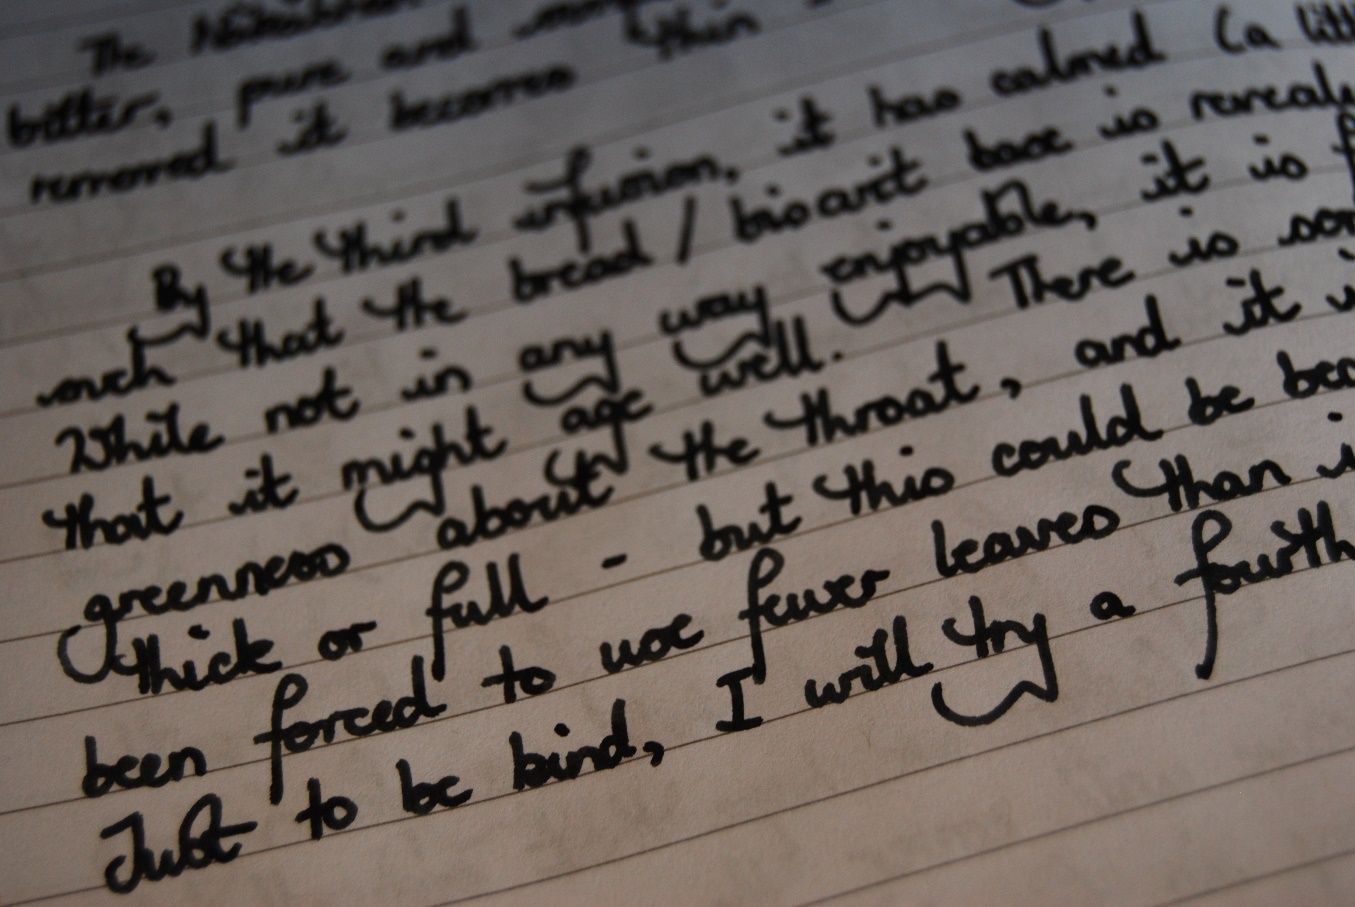 The
bitter, pure and
removed it becomes thin
By the third infusion, it has calmed (a
such that the bread / biscuit base is
While not in any way enjoyable, it is
that it might age well. There is
greenness about the throat, and it
thick or full - but this could be
been forced to use fewer leaves than
Just to be kind, I will try a fourth